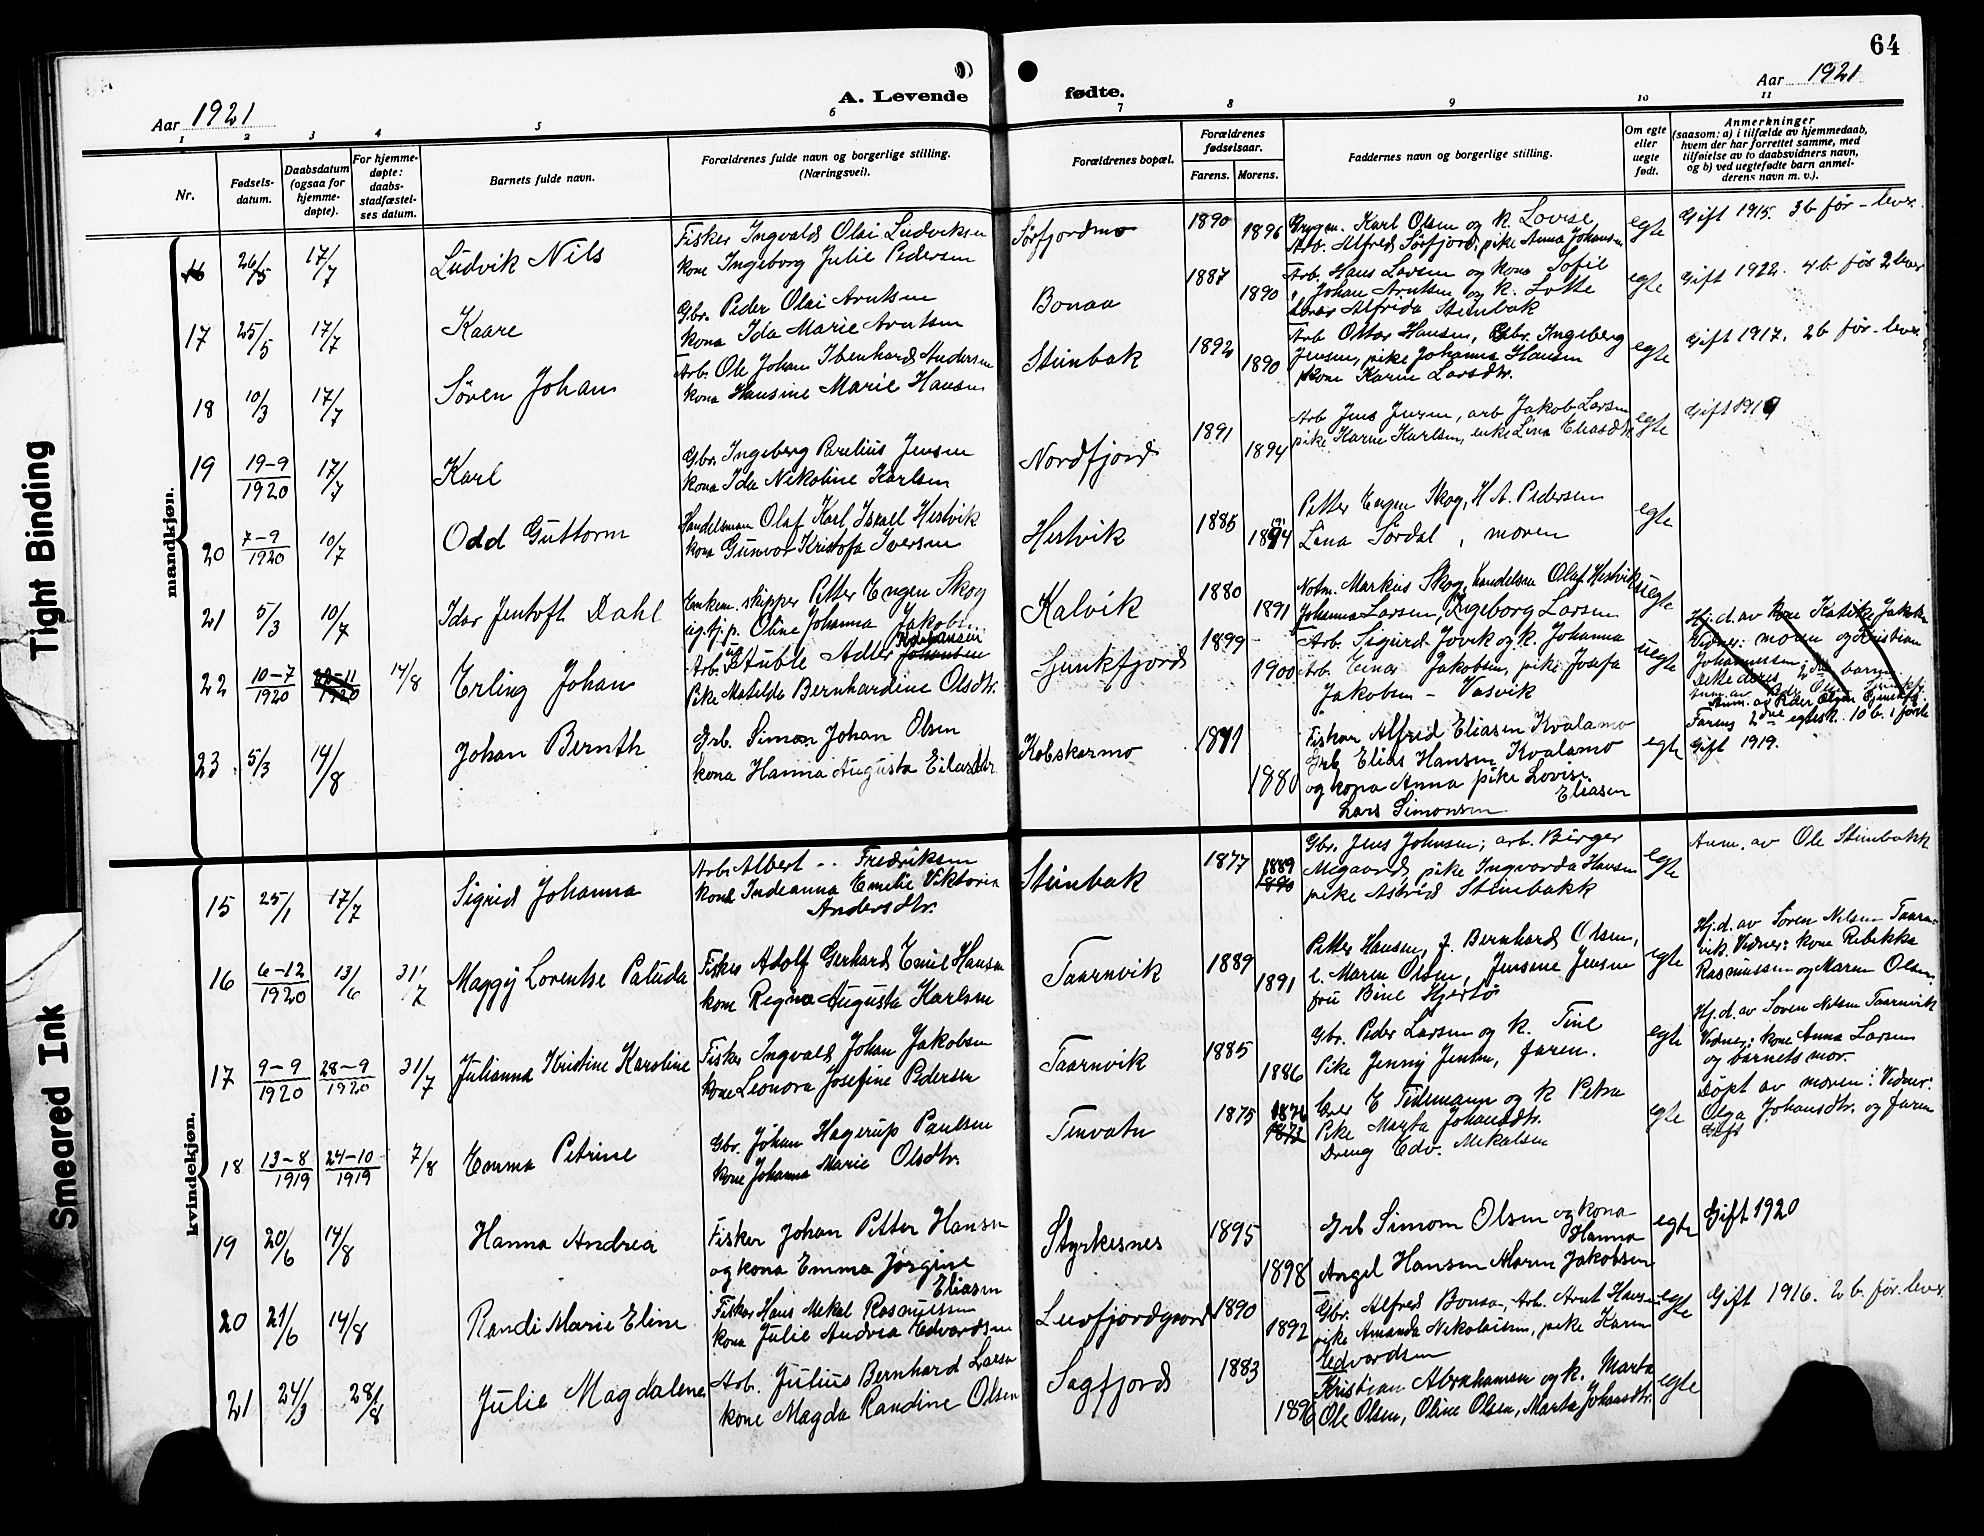 64
Aar 1921
A. Levende
fødte.
Aar 1921
1 2 3 4 5 6 7 8 9 10 11
Nr.
Fødsels-
datum.
Daabsdatum
(ogsaa for
hjemme-
døpte).
For hjemme-
døpte:
daabs-
stadfæstel-
ses datum.
Barnets fulde navn.
Forældrenes fulde navn og borgerlige stilling.
(Næringsvei).
Forældrenes bopæl.
Forældrenes
fødselsaar.
Farens. Morens.
Faddernes navn og borgerlige stilling.
Om egte
eller
uegte
født.
Anmerkninger
(saasom: a) i tilfælde av hjemmedaab,
hvem der har forrettet samme, med
tilføielse av to daabsvidners navn,
og b) ved uegtefødte barn anmel-
derens navn m. v.).
mandkjøn.
16 26/5 17/7 Ludvik Nils
Fisker Ingvald Olai Ludviksen
kone Ingeborg Julie Pedersen
Sørfjordmo 1890 1896
Karl Olsen og k. Lovise
Arb. Alfred Sørfjord, pike Anna Johansen
egte
Gift 1915. 3b før - lever
17 25/5 17/7 Kaare
Gbr. Peder Olai Arntsen
kona Ida Marie Arntsen
Bonaa 1887 1890
Arb. Hans Larsen og kona Sofie
" Johan Arntsen og k. Lotte
Alfrida Steinbak
egte
Gift 1922. 4b før 2 lever
18 10/3 17/7 Søren Johan
Arb. Ole Johan Ibenhard Andersen
kona Hansine Marie Hansen
Steinbak 1892 1890
Arb Ottar Hansen, Gbr. Ingeberg
Jensen, pike Johanna Hansen
kone Karen Larsdtr.
egte
Gift 1917. 2b før - lever
19 19-9/1920 17/7 Karl
Gbr. Ingeberg Parelius Jensen
kona Ida Nikoline Karlsen
Nordfjord 1891 1894
Arb Jens Jensen, arb Jakob Larsen
pike Karen Karlsen, enke Lina Eliasdtr
egte
Gift 1919
20 7-9/1920 10/7 Odd Guttorm
Handelsman Olaf Karl Israel Hestvik
kona Gunvor Kristofa Iversen
Hestvik 1885 1894
Petter Engen Skog, H A. Pedersen
Lina Sørdal, moren
egte
21 5/3 10/7 Idar Jentoft Dahl
Enkem. skipper Petter Engen Skog
ug. tj. p. Oline Johanna Jakobs
Kalvik 1880 1891
Notm. Markus Skog, handelsm Olaf Hestvik
Johanna Larsen, Ingeborg Larsen
uegte
22 10-7/1920 28-11/1920 14/8 Erling Johan
Arb. Stuble Adler Johansen
Pike Matilde Bernhardine Olsdtr.
Gjunkfjord 1899 1900
Arb. Sigurd Jovik og k. Johanna
Arb. Einar Jakobsen, pike Josefa
Jakobsen - Vasvik
uegte
Hj.d. av kone Katike Jakobs
Vidner: moren og Kristian
Johannessen,
Dette deres 2det barn
Anm. av Peder Olsen Gjunkfj.
Farens 2dne egtesk. 10 b. i første
23 5/3 14/8 Johan Bernth
Grb. Simon Johan Olsen
kona Hanna Augusta Eilasdtr
Kobskarmo 1871 1880
Fisker Alfred Eliasen Kvalamo
Grb Elias Hansen Kvalamo
og kona Anna pike Lovise
Eliasen
Lars Simonsen
egte
Gift 1919.
kvindekjøn.
15 25/1 17/7 Sigrid Johanna
Arb. Albert -- Fredriksen
kone Indeanna Emelie Viktoria
Andersdtr.
Steinbak 1877 1889 1890
Gbr. Jens Johnsen, arb. Birger
Megaard, pike Ingvarda Hansen
pike Astrid Steinbakk
egte
Anm. av Ole Steinbakk
16 6-12/1920 13/6 31/7 Maggy Lorentse Paluda
Fisker Adolf Gerhard Emil Hansen
kone Regina Augusta Karlsen
Taarnvik 1889 1891
Petter Hansen, f. Bernhard Olsen,
e. Maren Olsen, Jensine Jensen
fru Bine Hjertø
egte
Hj.d. av Søren Nilsen Taarn-
vik. Vidner: kone Rebekka
Rasmussen og Maren Olsen
17 9-9/1920 28-9/1920 31/7 Julianna Kristine Karoline
Fisker Ingvald Johan Jakobsen
kone Leonora Josefine Pedersen
Taarnvik 1885 1886
Gbr. Peder Larsen og k. Tine
Pike Jenny Jensen, faren.
egte
Hj.d. av Søren Nilsen Taarnvik
Vidner: kone Anna Larsen
og barnets mor.
18 13-8/1919 24-10/1919 7/8 Emma Petrine
Gbr. Johan Hagerup Paulsen
kone Johanna Marie Olsdtr.
Tenvatn 1875 1876 1873
Gbr E Tidemann og k Petra
Pike Marta Johansdtr.
Dreng Edv. Mikalsen
egte
Døpt av moren: Vidner:
Olga Johansdtr. og faren
Gift
19 20/6 14/8 Hanna Andrea
Fisker Johan Petter Hansen
og kona Emma Jørgine
Eliasen
Styrkesnes 1895 1898
Grb Simon Olsen og kona
Hanna
Angel Hansen Maren Jakobsen
egte
Gift 1920
20 21/6 14/8 Randi Marie Eline
Fisker Hans Mekal Rasmussen
kona Julie Andrea Edvardsen
Leirfjordgaard 1890 1892
Gbr. Alfred Bonaa, Arb. Arnt Hansen
pike Amanda Nikolaisen, pike Karen
Edvardsen
egte
Gift 1916. 2 b. før. lever
21 24/3 28/8 Julie Magdalene
Arb. Julius Bernhard Larsen
kone Magda Randine Olsen
Sagfjord 1883 1896
Kristian Abrahamsen og k. Marta
Ole Olsen, Oline Olsen, Marta Johansdtr.
egte
Tight Binding
Smeared Ink